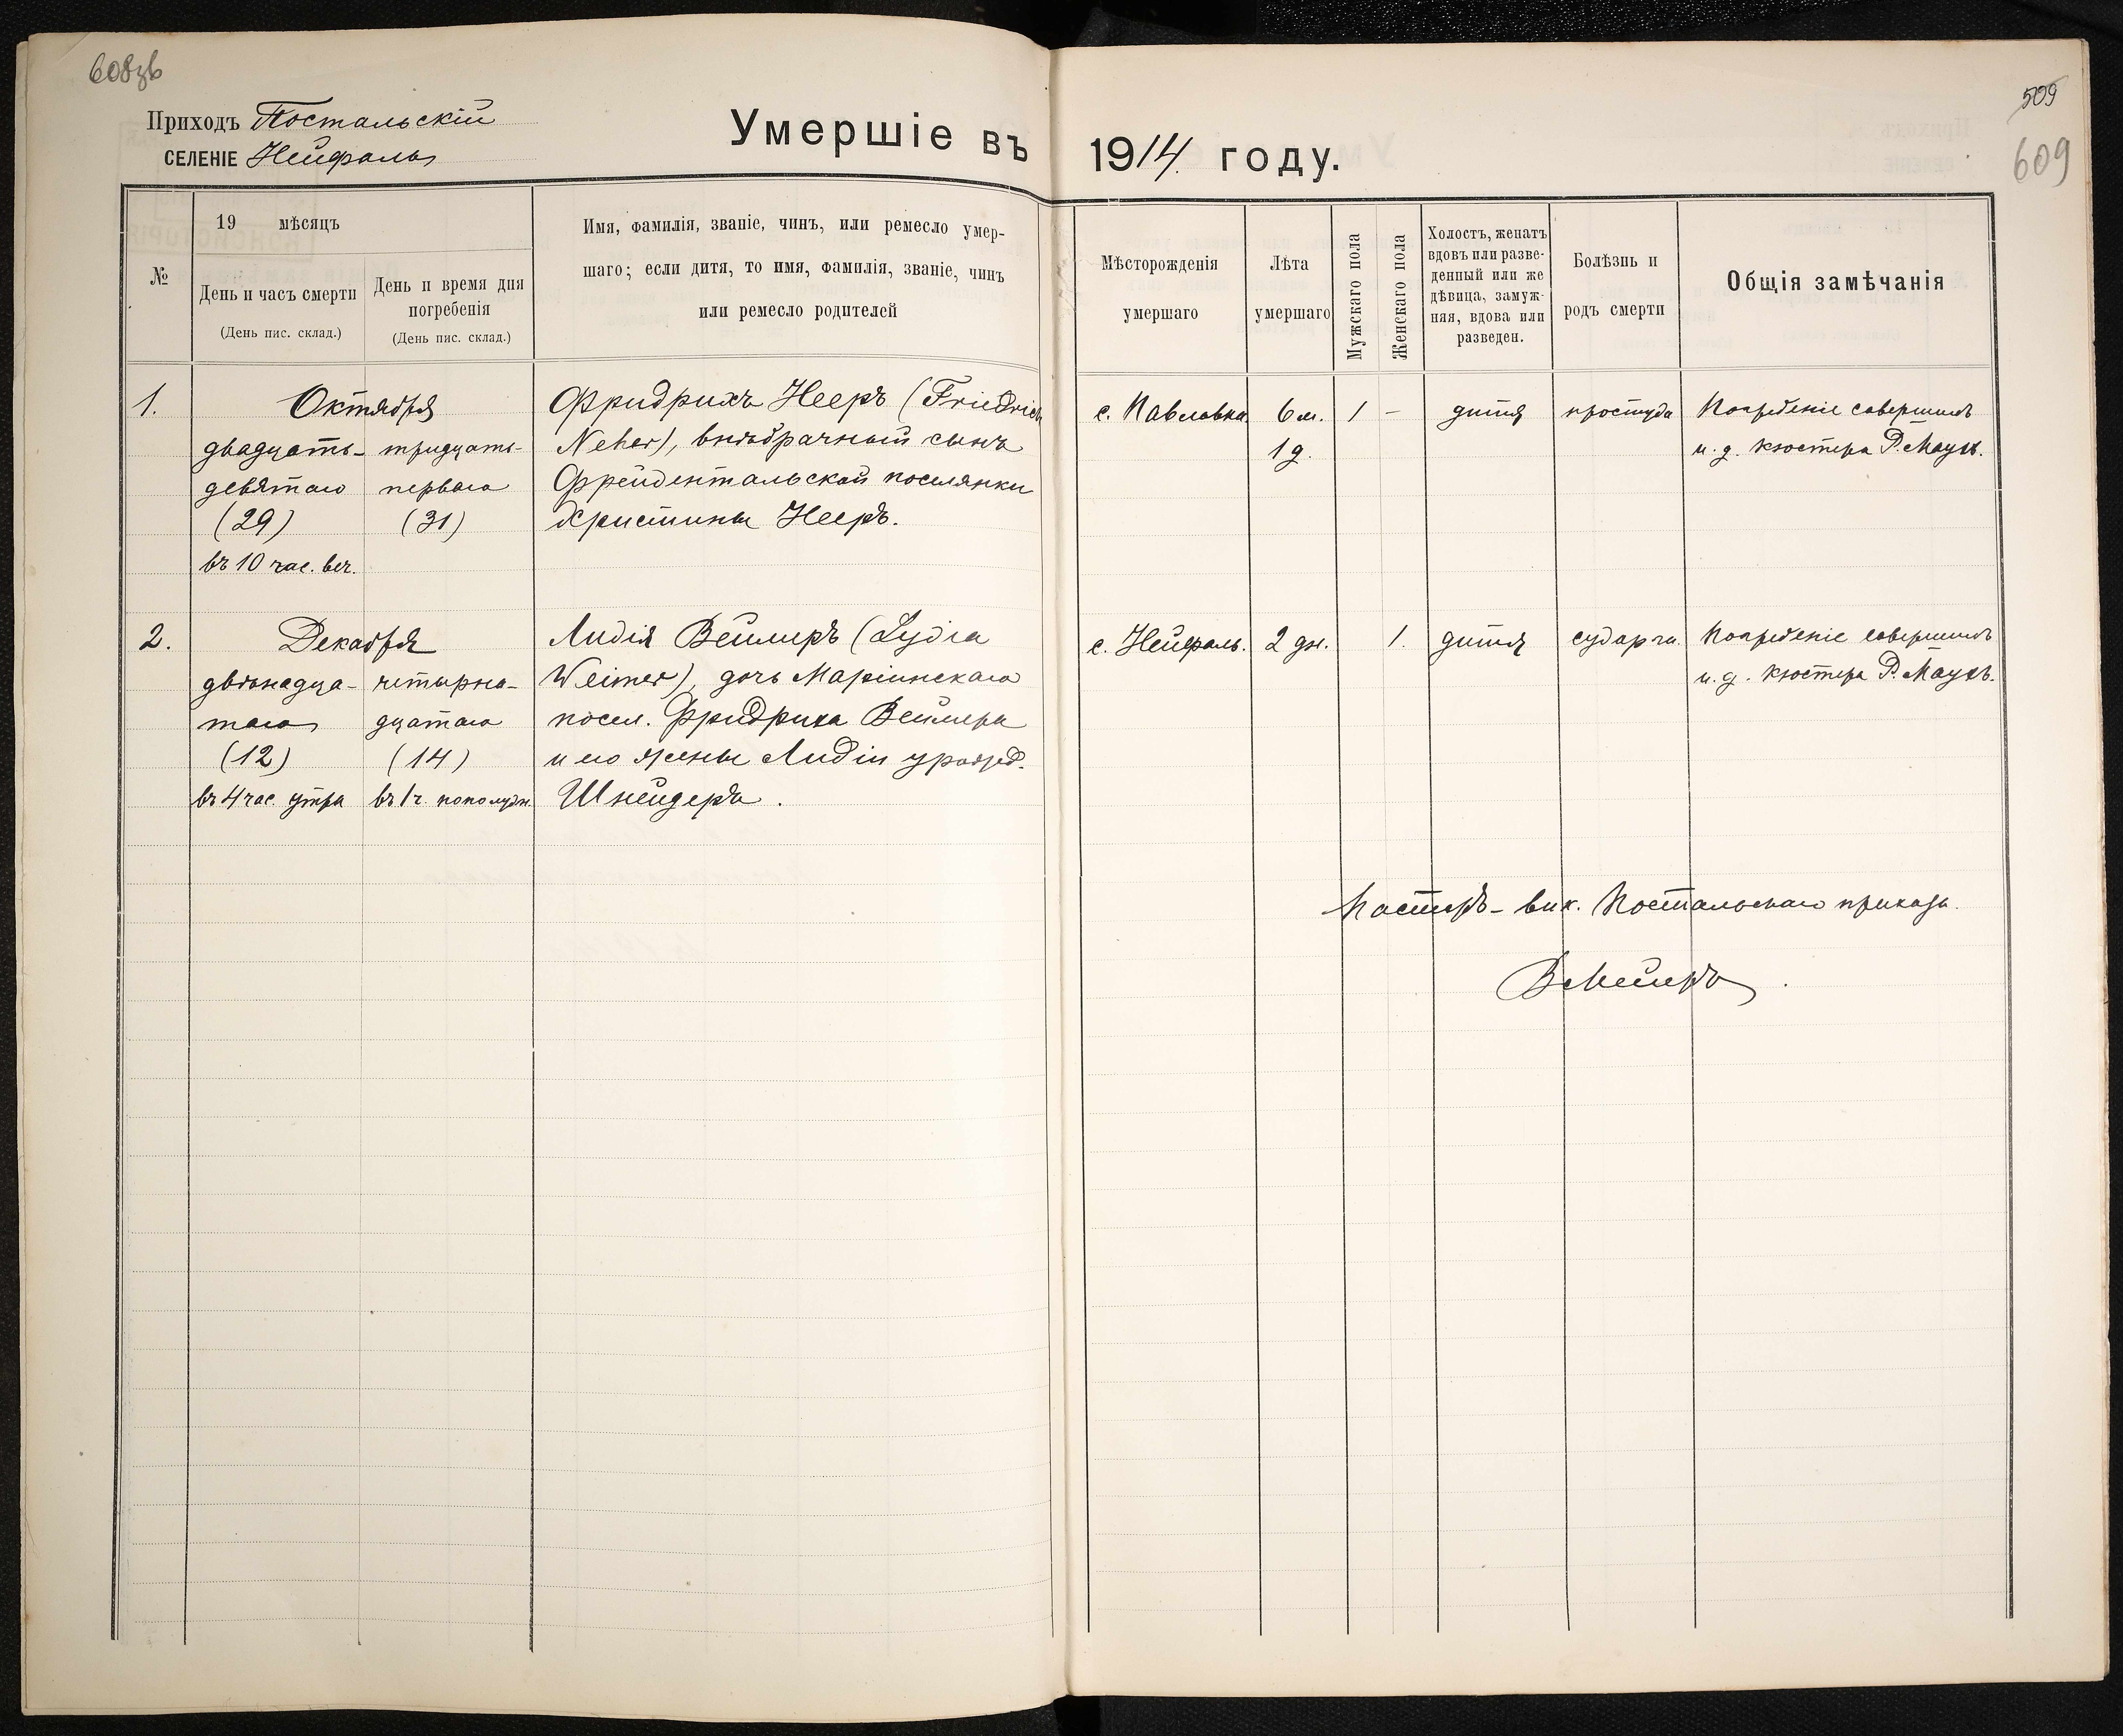 608зв
509
609
Приходъ Постальскій
СЕЛЕНІЕ Нейфаль
Умершіе въ 1914 году.
№
19 мѣсяцъ
День и часъ смерти
(День пис. склад.)
День и время дня
погребенія
(День пис. склад.)
Имя, фамилія, званіе, чинъ, или ремесло умер-
шаго; если дитя, то имя, фамилія, званіе, чинъ
или ремесло родителей
Мѣсторожденія
умершаго
Лѣта
умершаго
Мужскаго пола
Женскаго пола
Холостъ, женатъ
вдовъ или разве-
денный или же
дѣвица, замуж-
няя, вдова или
разведен.
Болѣзнь и
родъ смерти
Общія замѣчанія
1.
Октября
двадцать-
девятаго
(29)
въ 10 час. веч.
тридцать-
перваго
(31)
Фридрихъ Нееръ (Friedrich
Neher), внѣбрачный сынъ
Фрейдентальской поселянки
Христины Нееръ.
с. Павловка
6 м.
1 д.
1 –
дитя
простуда
Погребеніе совершилъ
и. д. кюстера Р. Маукъ.
2.
Декабря
двѣнадца-
таго
(12)
въ 4 час. утра
четырна-
дцатаго
(14)
въ 1 ч. пополудн.
Лидія Веймеръ (Lydia
Weimer), дочь Маріинскаго
посел. Фридриха Веймера
и его жены Лидіи урожд.
Шнейдеръ.
с. Нейфаль.
2 дн.
1.
дитя
судорга.
Погребеніе совершилъ
и. д. кюстера Р. Маукъ.
Пасторъ-вик. Постальскаго прихода.
В Мейеръ.